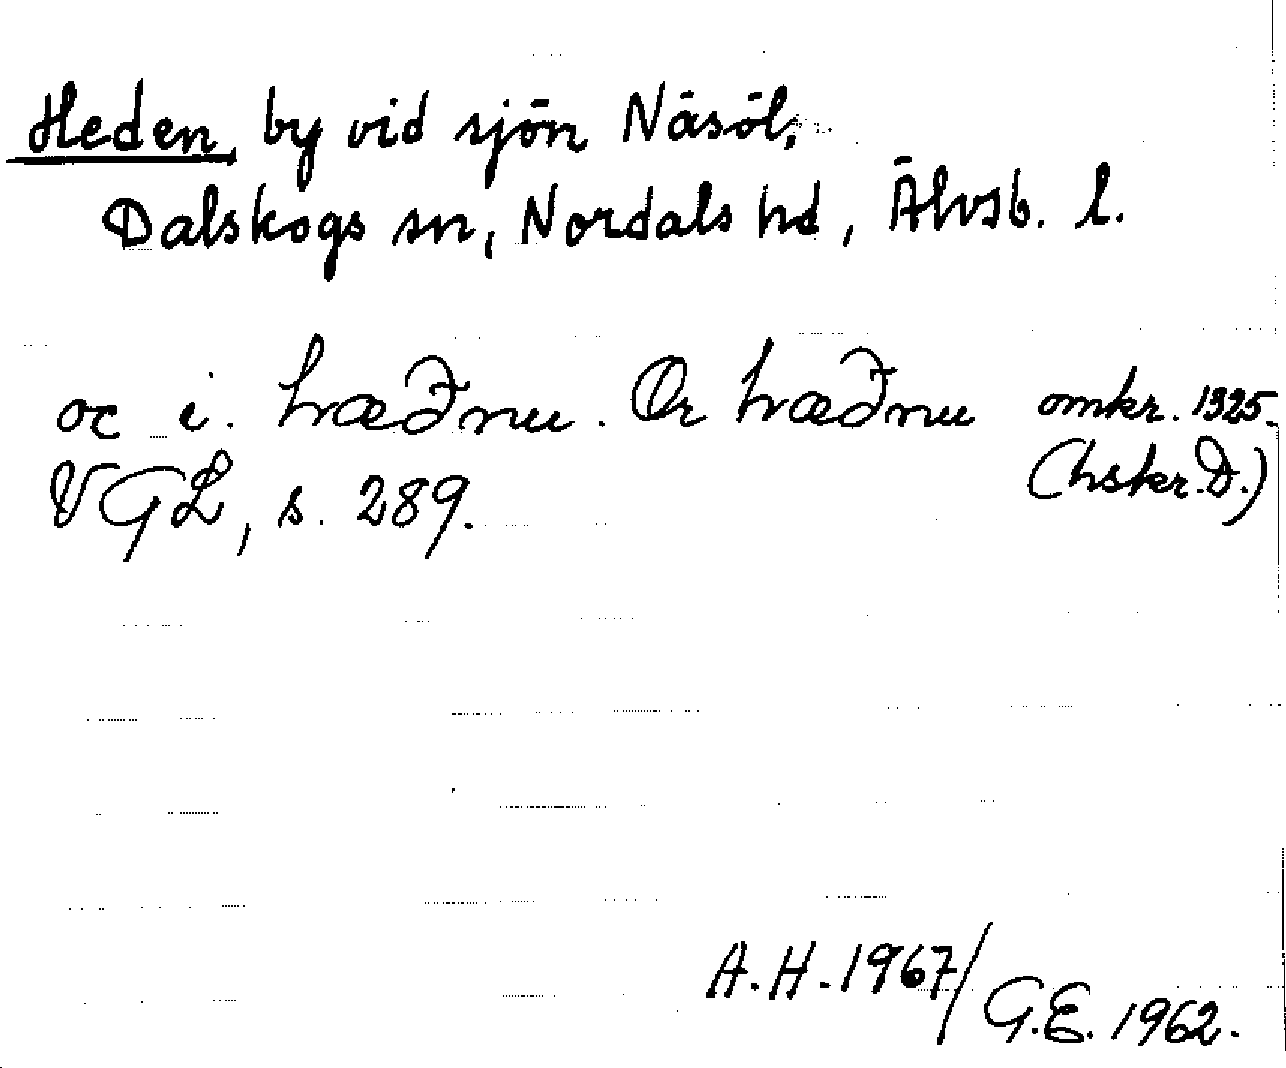 Heden, by vid sjön Näsöl,
Dalskogs sn, Nordals hd, Älvsb. l.
oc i. hæðnu. Or hæðnu omkr. 1325.
VGL, s. 289. (hskr. D.)
A.H. 1967/G.E. 1962.